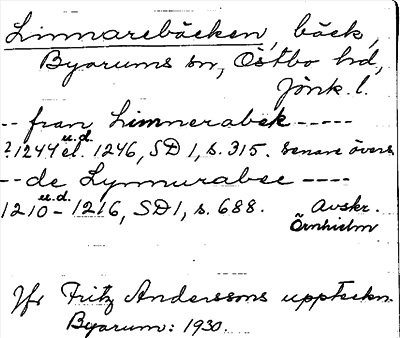 Linnarebäcken, bäck,
Byarums sn, Östbo hd,
Jönk. l.
-- fran Limnerabek -----
u.d.
? 1244 el. 1246, SD 1, s. 315. senare övers.
-- de Lynnurabec ----
u.d.
1210 - 1216, SD 1, s. 688. Avskr.
Örnhielm
Jfr Fritz Anderssons uppteckn.
Byarum: 1930.